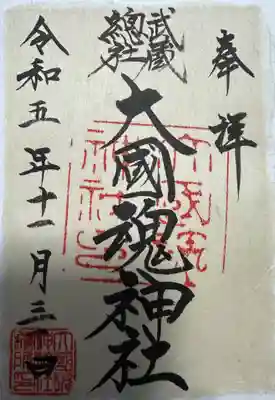 奉拝
武蔵
總社
大國魂神社
令和五年十一月三日